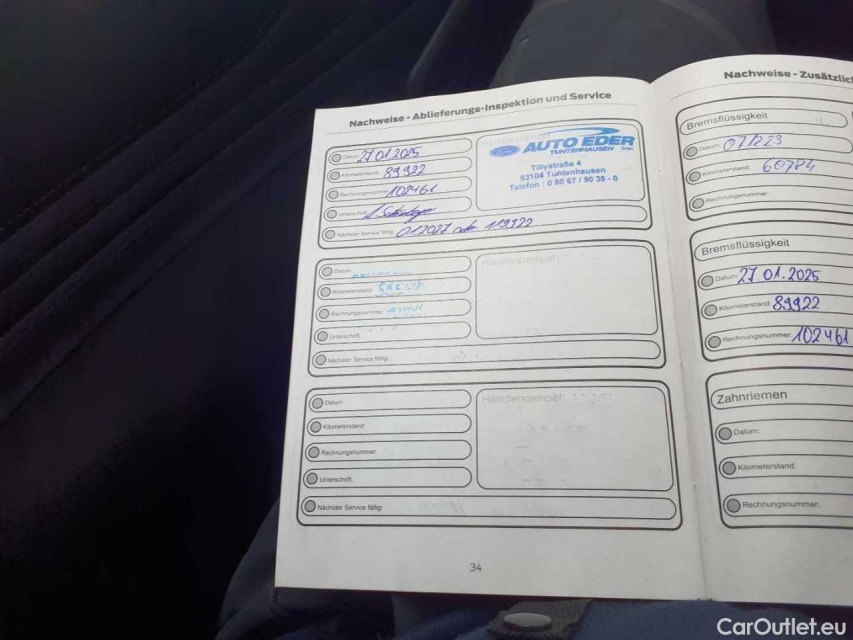 Nachweise - Ablieferungs-Inspektion und Service
Datum: 27.01.2025
Kilometerstand: 89922
Rechnungsnummer: 102461
Unterschrift:
Nächster Service fällig: 012027 oder 119922
AUTO EDER
TUNTENHAUSEN
Tillystraße 4
83104 Tuntenhausen
Telefon : 0 80 67 / 90 35 - 0
Datum:
Kilometerstand:
Rechnungsnummer:
Unterschrift:
Nächster Service fällig:
Händlerstempel:
Datum:
Kilometerstand:
Rechnungsnummer:
Unterschrift:
Nächster Service fällig:
Händlerstempel:
34
Nachweise - Zusätzlich
Bremsflüssigkeit
Datum: 07/223
Kilometerstand: 60784
Rechnungsnummer:
Bremsflüssigkeit
Datum: 27 01.2025
Kilometerstand: 89922
Rechnungsnummer: 102461
Zahnriemen
Datum:
Kilometerstand:
Rechnungsnummer:
CarOutlet.eu